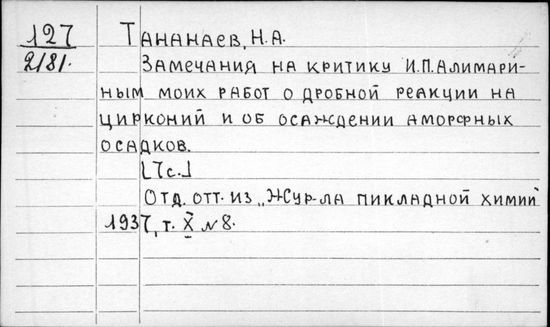 127 Тананаев, Н.А.
2181. Замечания на критику И.П.Алимари-
ным моих работ о дробной реакции на
цирконий и об осаждении аморфных
осадков.
[7с.]
Отд. отт. из „Жур-ла пикладной химии
1937, т. X № 8.